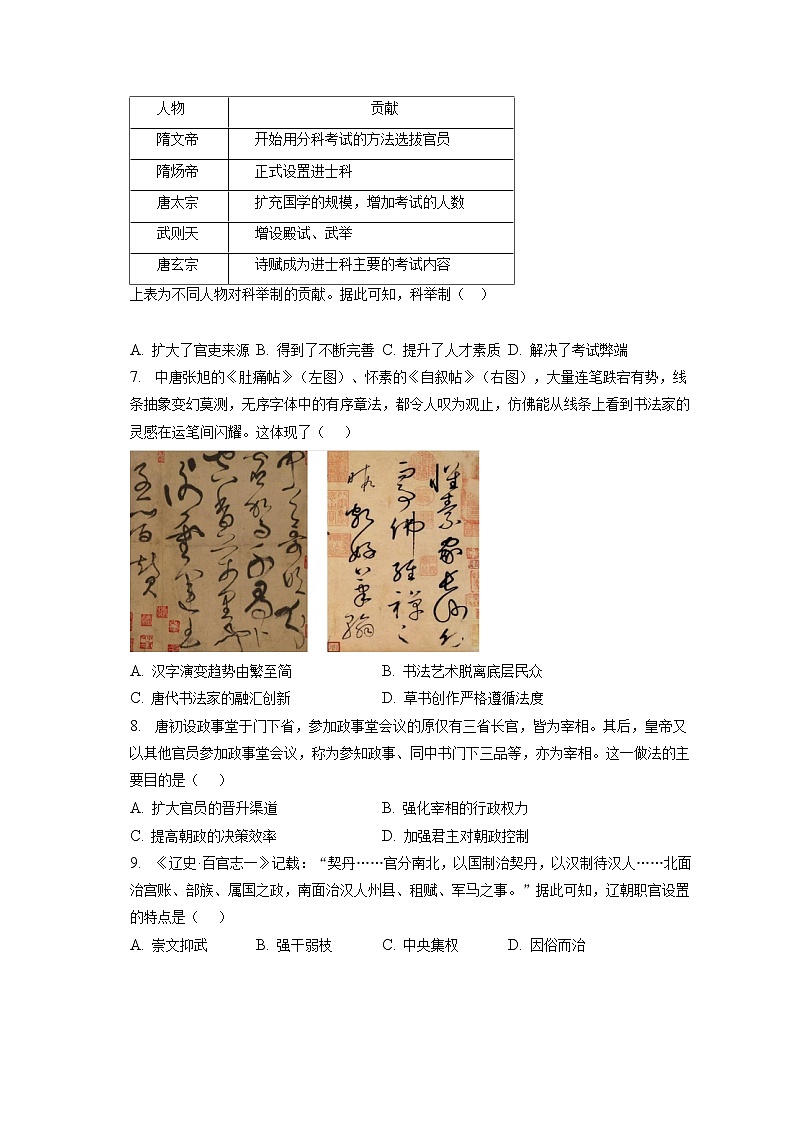 人物 贡献
隋文帝 开始用分科考试的方法选拔官员
隋炀帝 正式设置进士科
唐太宗 扩充国学的规模，增加考试的人数
武则天 增设殿试、武举
唐玄宗 诗赋成为进士科主要的考试内容
上表为不同人物对科举制的贡献。据此可知，科举制（ ）
A. 扩大了官吏来源 B. 得到了不断完善 C. 提升了人才素质 D. 解决了考试弊端
7. 中唐张旭的《肚痛帖》（左图）、怀素的《自叙帖》（右图），大量连笔跌宕有势，线
条抽象变幻莫测，无序字体中的有序章法，都令人叹为观止，仿佛能从线条上看到书法家的
灵感在运笔间闪耀。这体现了（ ）
怀素家长沙幼
而事佛经禅之
暇颇好笔翰
A. 汉字演变趋势由繁至简 B. 书法艺术脱离底层民众
C. 唐代书法家的融汇创新 D. 草书创作严格遵循法度
8. 唐初设政事堂于门下省，参加政事堂会议的原仅有三省长官，皆为宰相。其后，皇帝又
以其他官员参加政事堂会议，称为参知政事、同中书门下三品等，亦为宰相。这一做法的主
要目的是（ ）
A. 扩大官员的晋升渠道 B. 强化宰相的行政权力
C. 提高朝政的决策效率 D. 加强君主对朝政控制
9. 《辽史·百官志一》记载：“契丹……官分南北，以国制治契丹，以汉制待汉人……北面
治宫账、部族、属国之政，南面治汉人州县、租赋、军马之事。”据此可知，辽朝职官设置
的特点是（ ）
A. 崇文抑武 B. 强干弱枝 C. 中央集权 D. 因俗而治